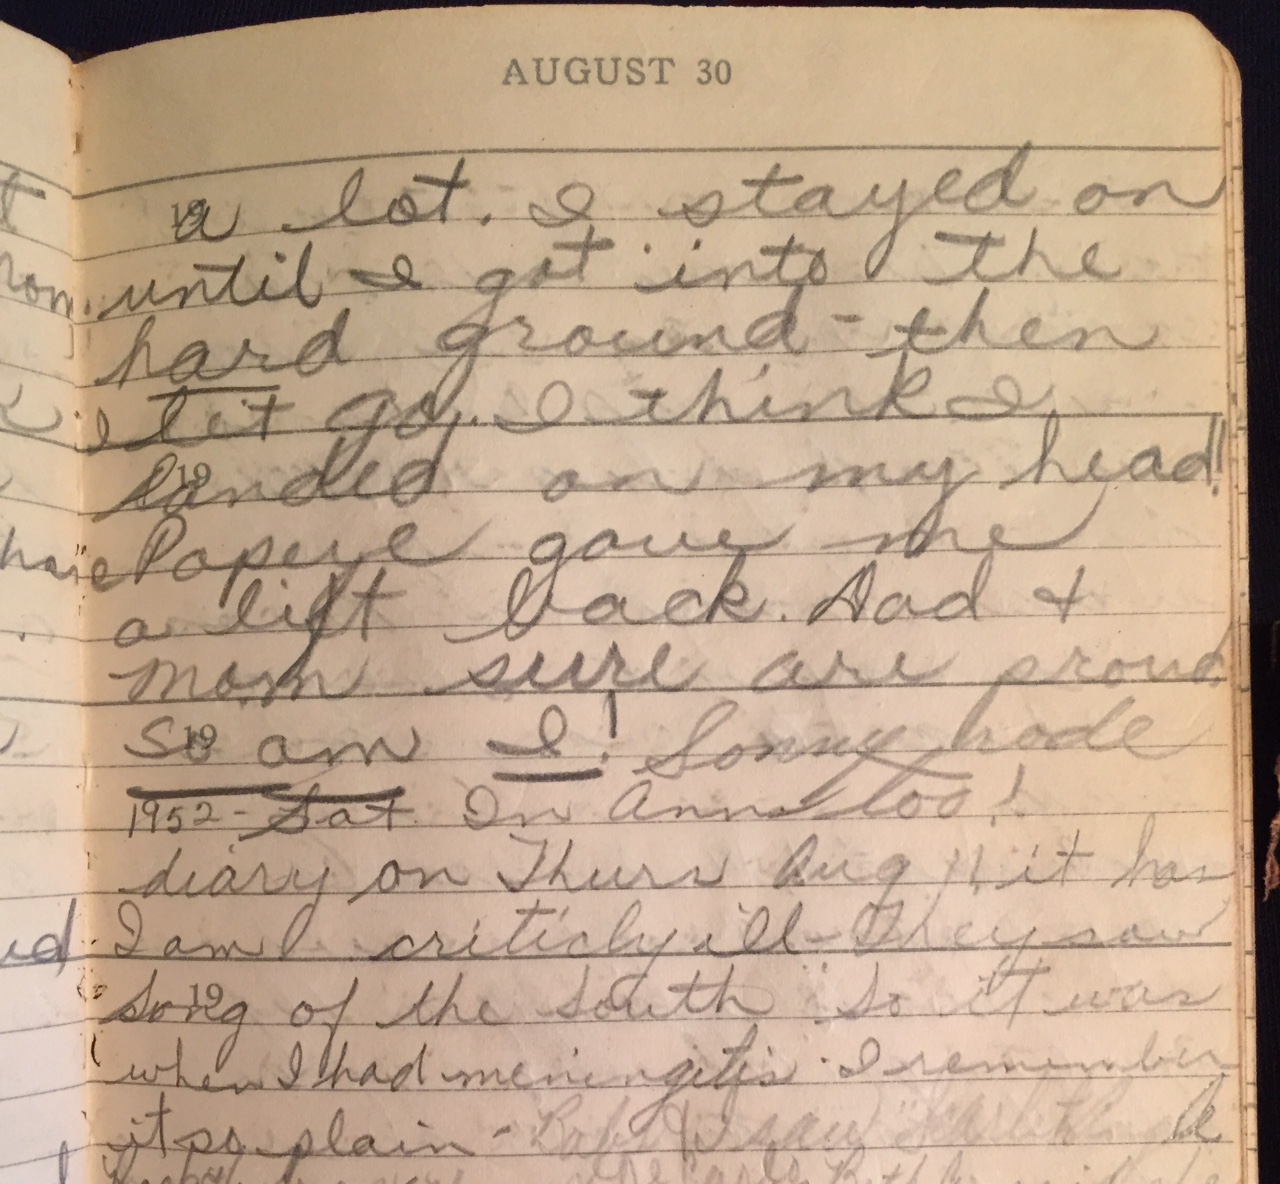 AUGUST 30
19 a lot. I stayed on
until I got into the
hard ground - then
I let go. I think I
19 landed on my head!!
Popeye gave me
a lift back. Dad &
mom sure are proud
So 19 am I! Sonny rode
1952 - Sat. In Anns too!
diary on Thurs Aug 11 it has
I am criticly ill - They saw
Song 19 of the South So it was
when I had meniningitis. I remember
it so plain -